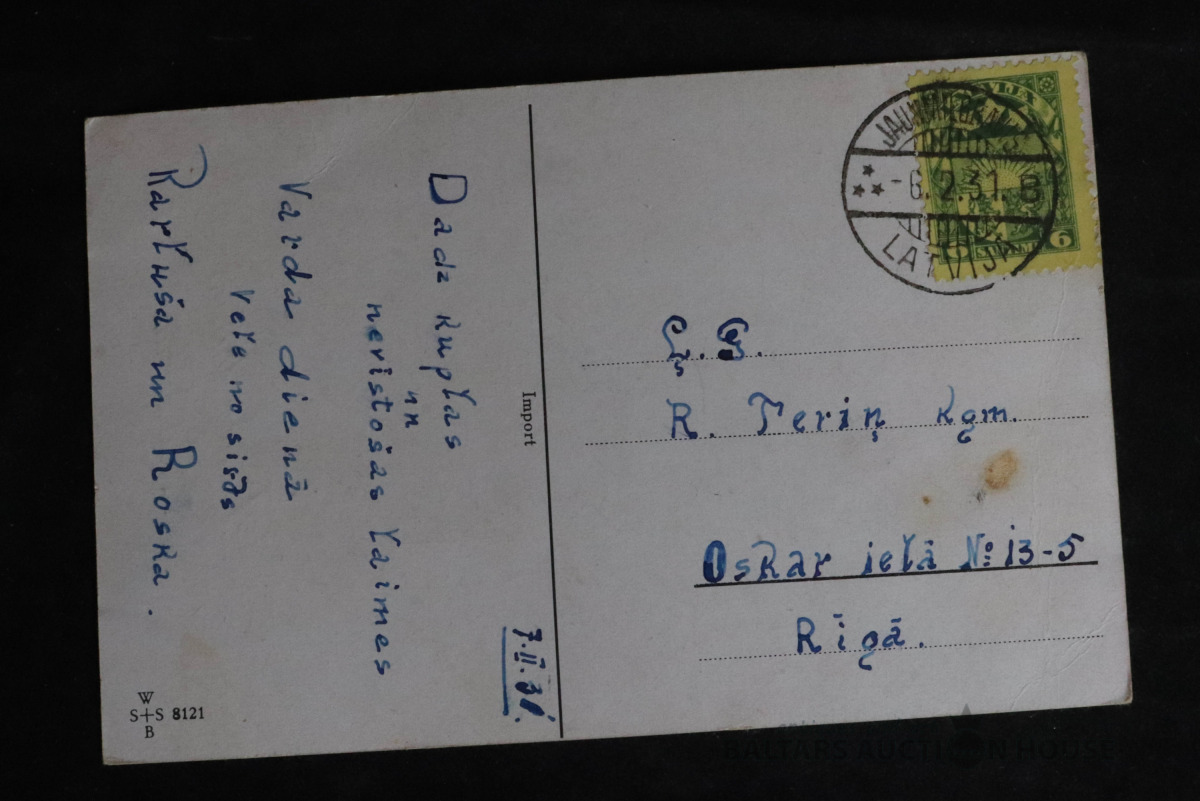 7.II.31.
Dadz kupłas
un
nerīstošas laimes
Varda dienā
Vēlē no sirds
un Roska.
W
S+S 8121
B
Import
LATVIJA
-6.2.31. B
6
Ļ. G.
R. Teriņ kgm.
Oskar ielā № 13-5
Rīgā.
BALTARS AUCTION HOUSE